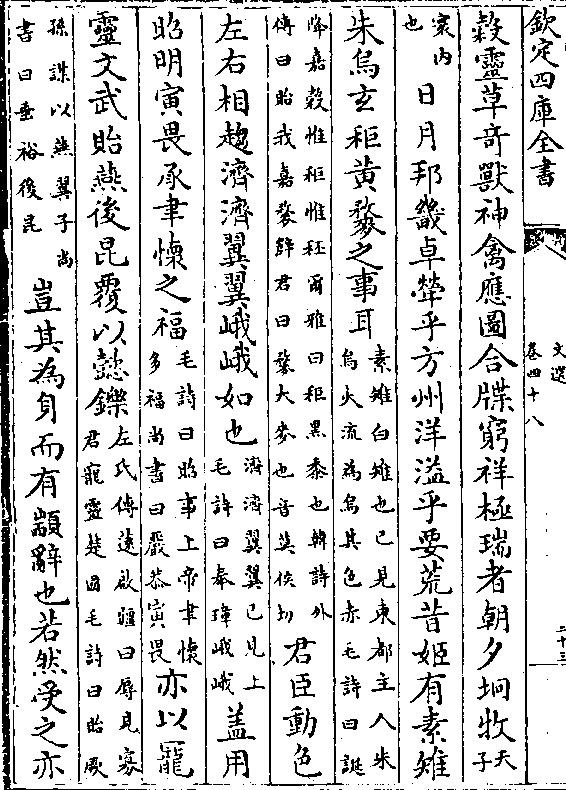 欽定四庫全書
文選
卷四十八
二十三
穀靈草奇獸神禽應圖合牒窮祥極瑞者朝夕坰牧天子
寰内
也
日月邦畿卓犖乎方州洋溢乎要荒昔姬有素雉
朱烏玄秬黄麰之事耳
素雉白雉也已見東都主人朱
烏火流為烏其色赤毛詩曰誕
降嘉穀惟秬惟秠爾雅曰秬黑黍也韓詩外
傳曰貽我嘉麰薛君曰麰大麥也音莫侯切
君臣動色
左右相趨濟濟翼翼峨峨如也
濟濟翼翼已見上
毛詩曰奉璋峨峨
蓋用
昭明寅畏承聿懷之福
毛詩曰昭事上帝聿懷
多福尚書曰嚴恭寅畏
亦以寵
靈文武貽燕後昆覆以懿鑠
左氏傳薳啟疆曰辱見寡
君寵靈楚國毛詩曰貽厥
孫謀以燕翼子尚
書曰垂裕後昆
豈其為身而有顓辭也若然受之亦